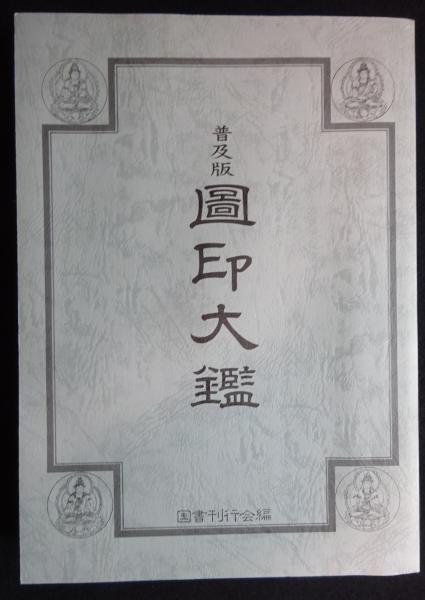 普及版
圖印大鑑
国書刊行会編